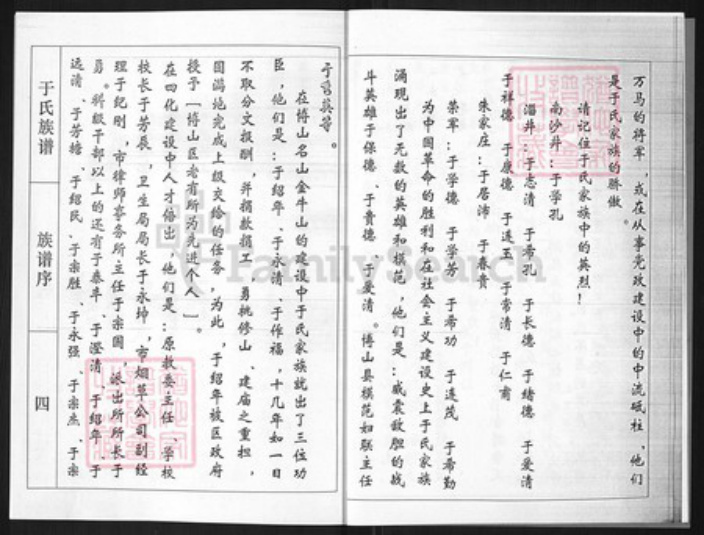 万马的将军，或在从事党政建设中的中流砥柱，他们
是于氏家族的骄傲。
请记住于氏家族中的英烈！
南沙井：于学孔
淄井：于志清 于希孔 于长德 于绪德 于爱清
于祥德 于康德 于连玉 于常清 于仁甫
朱家庄：于居沛 于春贵
荣军：于学德 于学芳 于希功 于连茂 于希勤
为中国革命的胜利和在社会主义建设史上于氏家族
涌现出了无数的英雄和模范，他们是：威震敌胆的战
斗英雄于保德、于贵德、于爱清。博山县模范妇联主任
于秀英等。
在博山名山金牛山的建设中于氏家族就出了三位功
臣，他们是：于绍年、于永清、于作福，十几年如一日
不取分文报酬，并捐款捐工，勇挑修山、建庙之重担，
圆满地完成上级交给的任务，为此，于绍年被区政府
授予［博山区老有所为先进个人］。
在四化建设中人才倍出，他们是：原教委主任、学校
校长于芳辰，卫生局局长于永坤，市烟草公司副经
理于纪刚，市律师事务所主任于宗国，派出所所长于
勇。科级干部以上的还有于泰年、于澄清、于绍年、于
远清、于芳塘、于绍民、于宗胜、于永强、于宗杰、于宗
于氏族谱
族谱序
四
FamilySearch